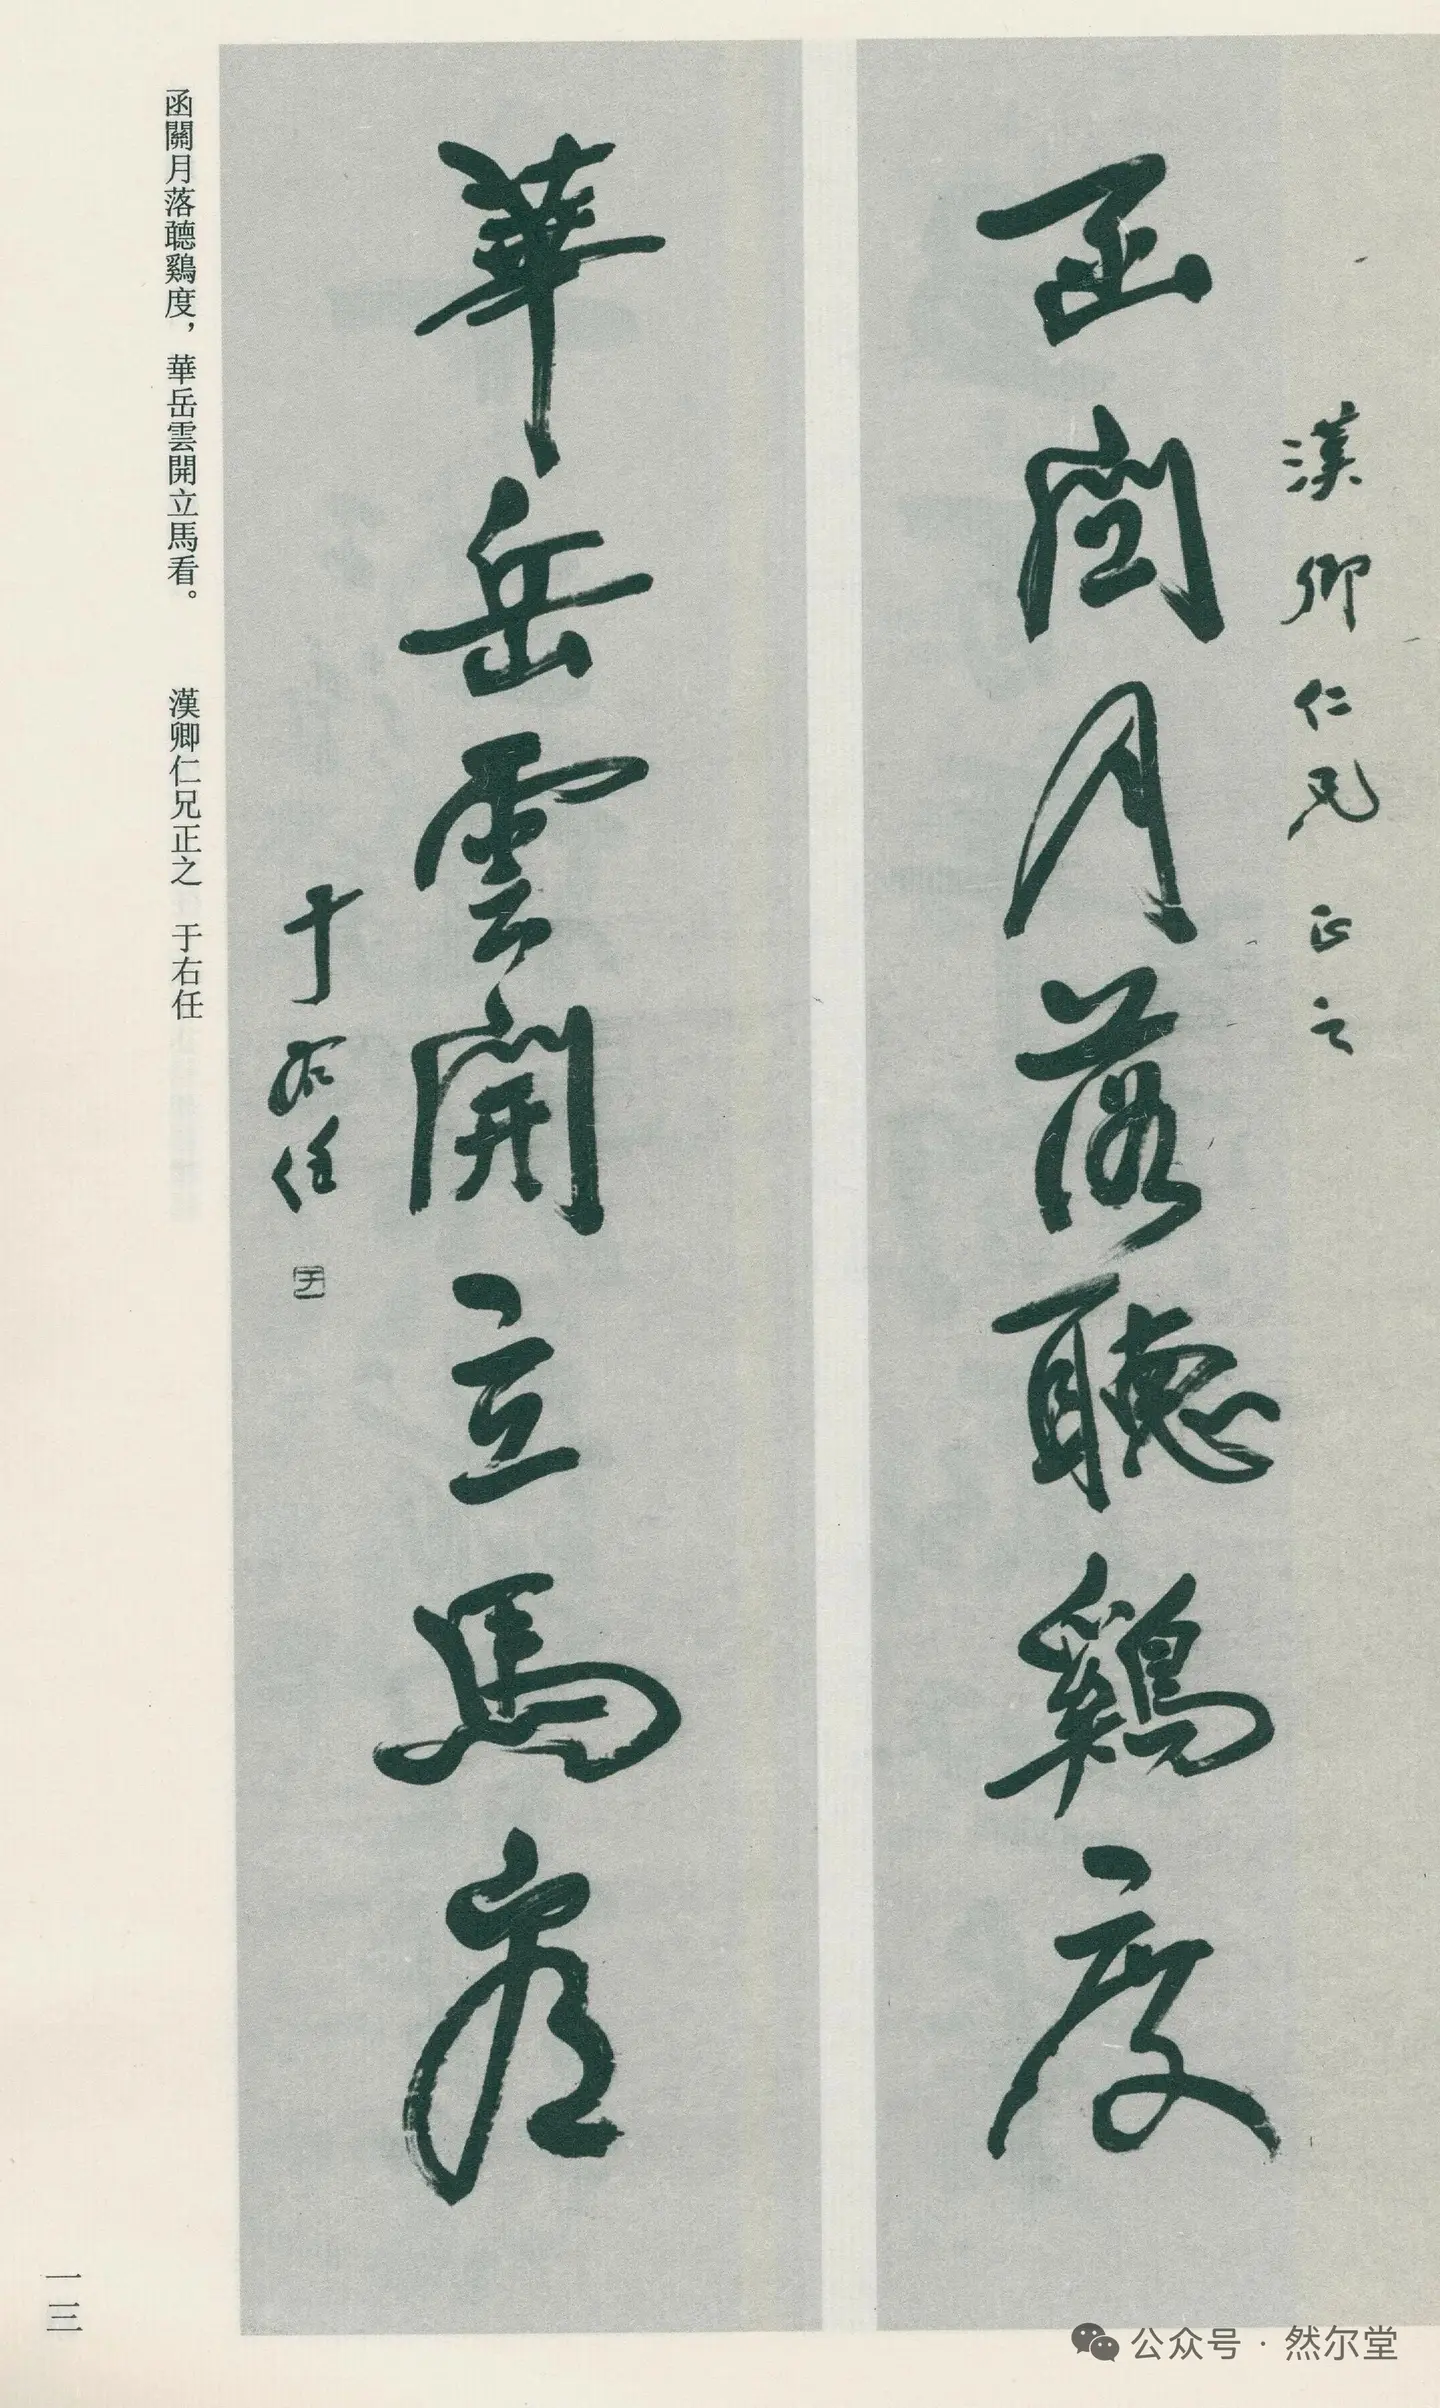 漢卿仁兄正之
函關月落聽鷄度
華岳雲開立馬看
于右任
函關月落聽鷄度，華岳雲開立馬看。　漢卿仁兄正之　于右任
一三
公众号·然尔堂